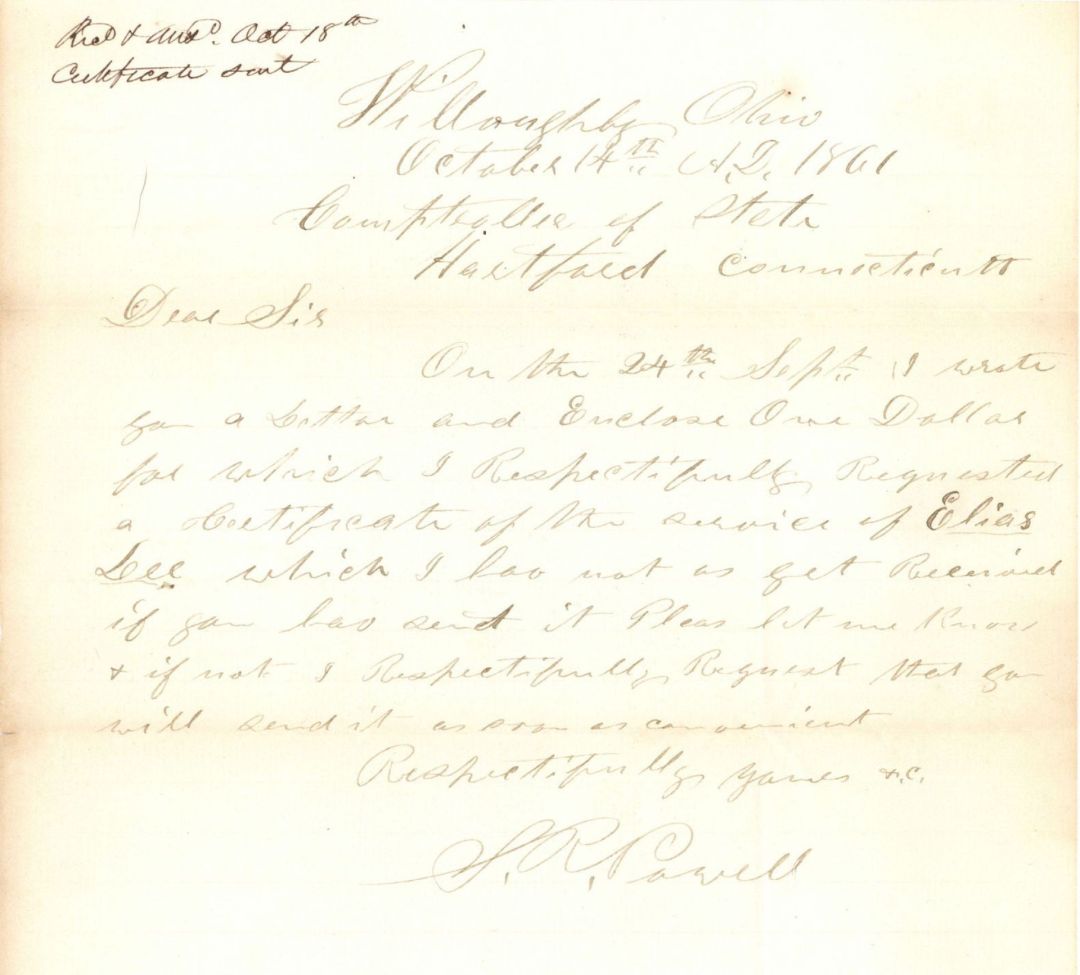 Recd & ansd. Oct 18th
Certificate sent
Willoughby Ohio
October 14th A.D. 1861
Comptroller of State
Hartford Connecticutt
Dear Sir
On the 24th Sept I wrote
you a Letter and Enclose One Dollar
for which I Respectifully Requested
a Certificate of the service of Elias
Lee which I hav not as yet Received
if you hav sent it Pleas let me Know
& if not I Respectifully Request that you
will send it as soon as convenient
Respectifully yours &.c.
S. R. Powell